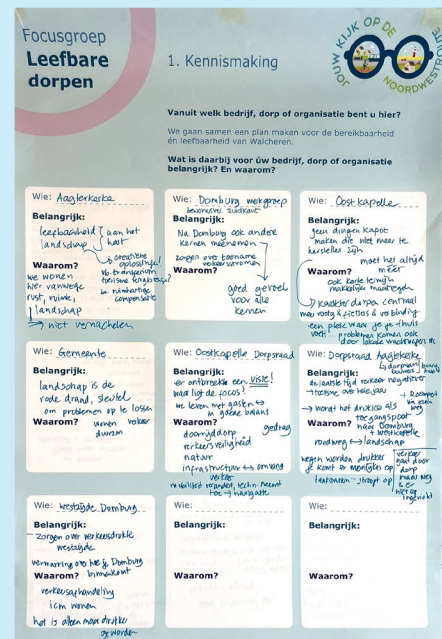 Focusgroep
Leefbare
dorpen
1. Kennismaking
JOUW KIJK OP DE
NOORDWESTROUTE
Vanuit welk bedrijf, dorp of organisatie bent u hier?
We gaan samen een plan maken voor de bereikbaarheid
én leefbaarheid van Walcheren.
Wat is daarbij voor úw bedrijf, dorp of organisatie
belangrijk? En waarom?
Wie: Aagtekerke
Belangrijk:
leefbaarheid aan het
landschap hart
creatieve
oplossing!
Waarom?
vb. transferium
toerisme
we wonen
hier vanwege
vb. ruimtelijke
rust, ruimte,
compensatie
landschap
→ niet verrommelen
Wie: Domburg werkgroep
Belangrijk:
Na Domburg ook andere
kernen meenemen
zorgen over toename
verkeersstromen
Waarom?
goed gevoel
voor alle
kernen
Wie: Oostkapelle
Belangrijk:
geen dingen kapot
maken die niet meer te
herstellen zijn
moet het altijd
meer
Waarom?
ook korte termijn
makkelijke maatregelen
karakter dorpen centraal
meer rustig & fietsers & verbinding
een plek waar je je thuis
voelt!
problemen komen ook
door lokale
Wie: Gemeente
Belangrijk:
landschap is de
rode draad, sleutel
om problemen op te lossen
Waarom?
wonen verkeer
duurzm
Wie: Oostkapelle Dorpsraad
Belangrijk:
er ontbreekt een visie!
waar ligt de focus!
we leven met gasten
in goede balans
Waarom?
doorrijdorp
gedrag
verkeersveiligheid
natuur
infrastructuur ↔ omvang
verkeer
mobiliteit verandert, techn. neemt
toe → navigatie
Wie: Dorpsraad Aagtekerke
Belangrijk:
de laatste tijd verkeer negatiever
toerisme over hele jaar
→ wordt het drukker als
toegangspoort
Waarom?
naar Domburg
+ Westkapelle
randweg ↔ landschap
wegen worden drukker
je komt er moeilijker op
verkeer
gaat door
dorp
maar weg
is er
niet op
ingericht
Wie: westzijde Domburg
Belangrijk:
zorgen over verkeersdrukte
westzijde
verwarring over hoe je Domburg
Waarom?
binnenkomt
verkeersafhandeling
icm wonen
het is alleen maar drukker
geworden
Wie:
Belangrijk:
Waarom?
Wie:
Belangrijk:
Waarom?